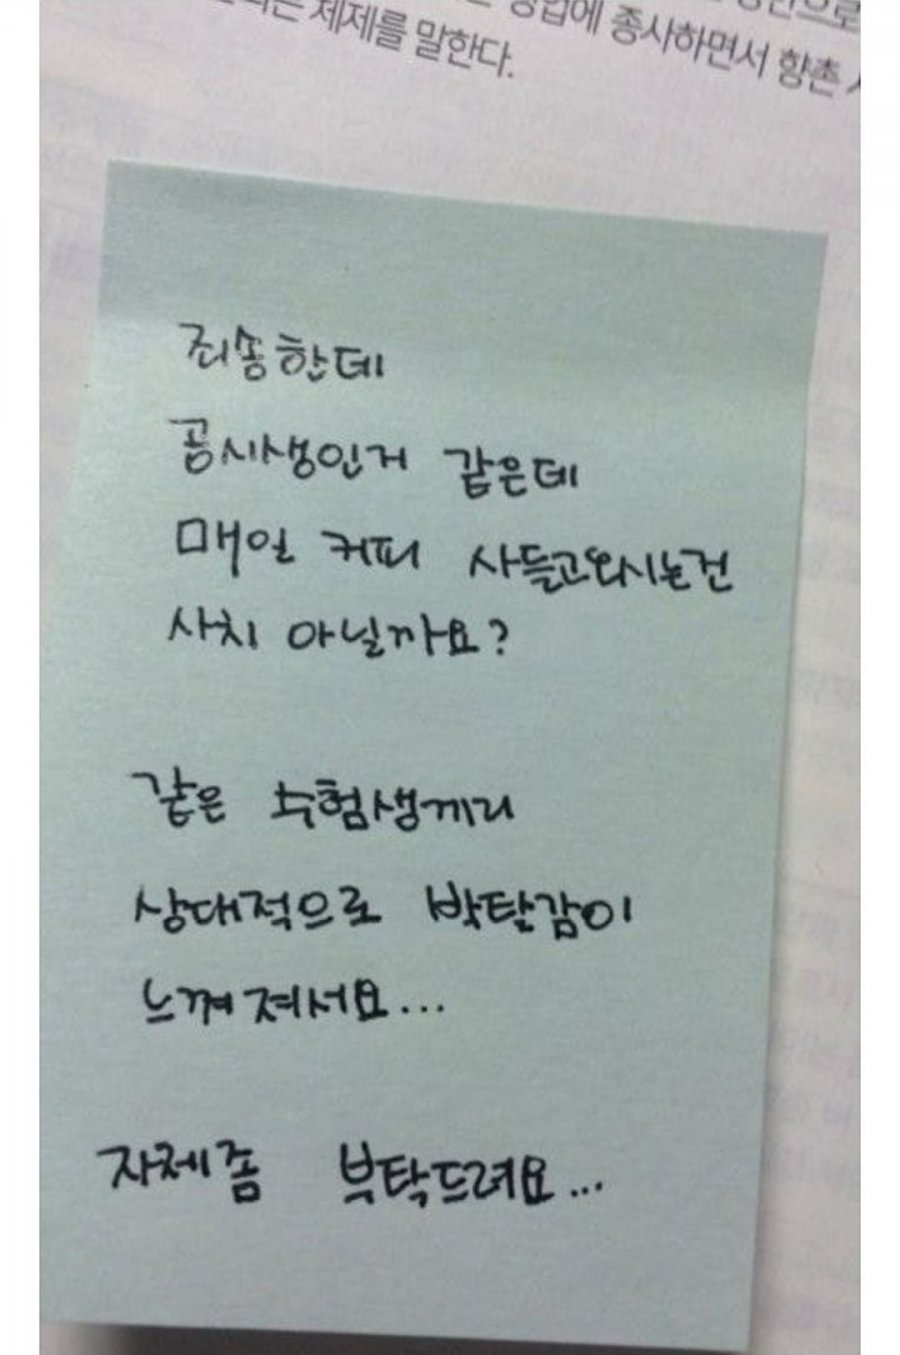 업에 종사하면서 향촌
제제를 말한다.
죄송한데
공시생인거 같은데
매일 커피 사들고오시는건
사치 아닐까요?
같은 수험생끼리
상대적으로 박탈감이
느껴져서요...
자제좀 부탁드려요...